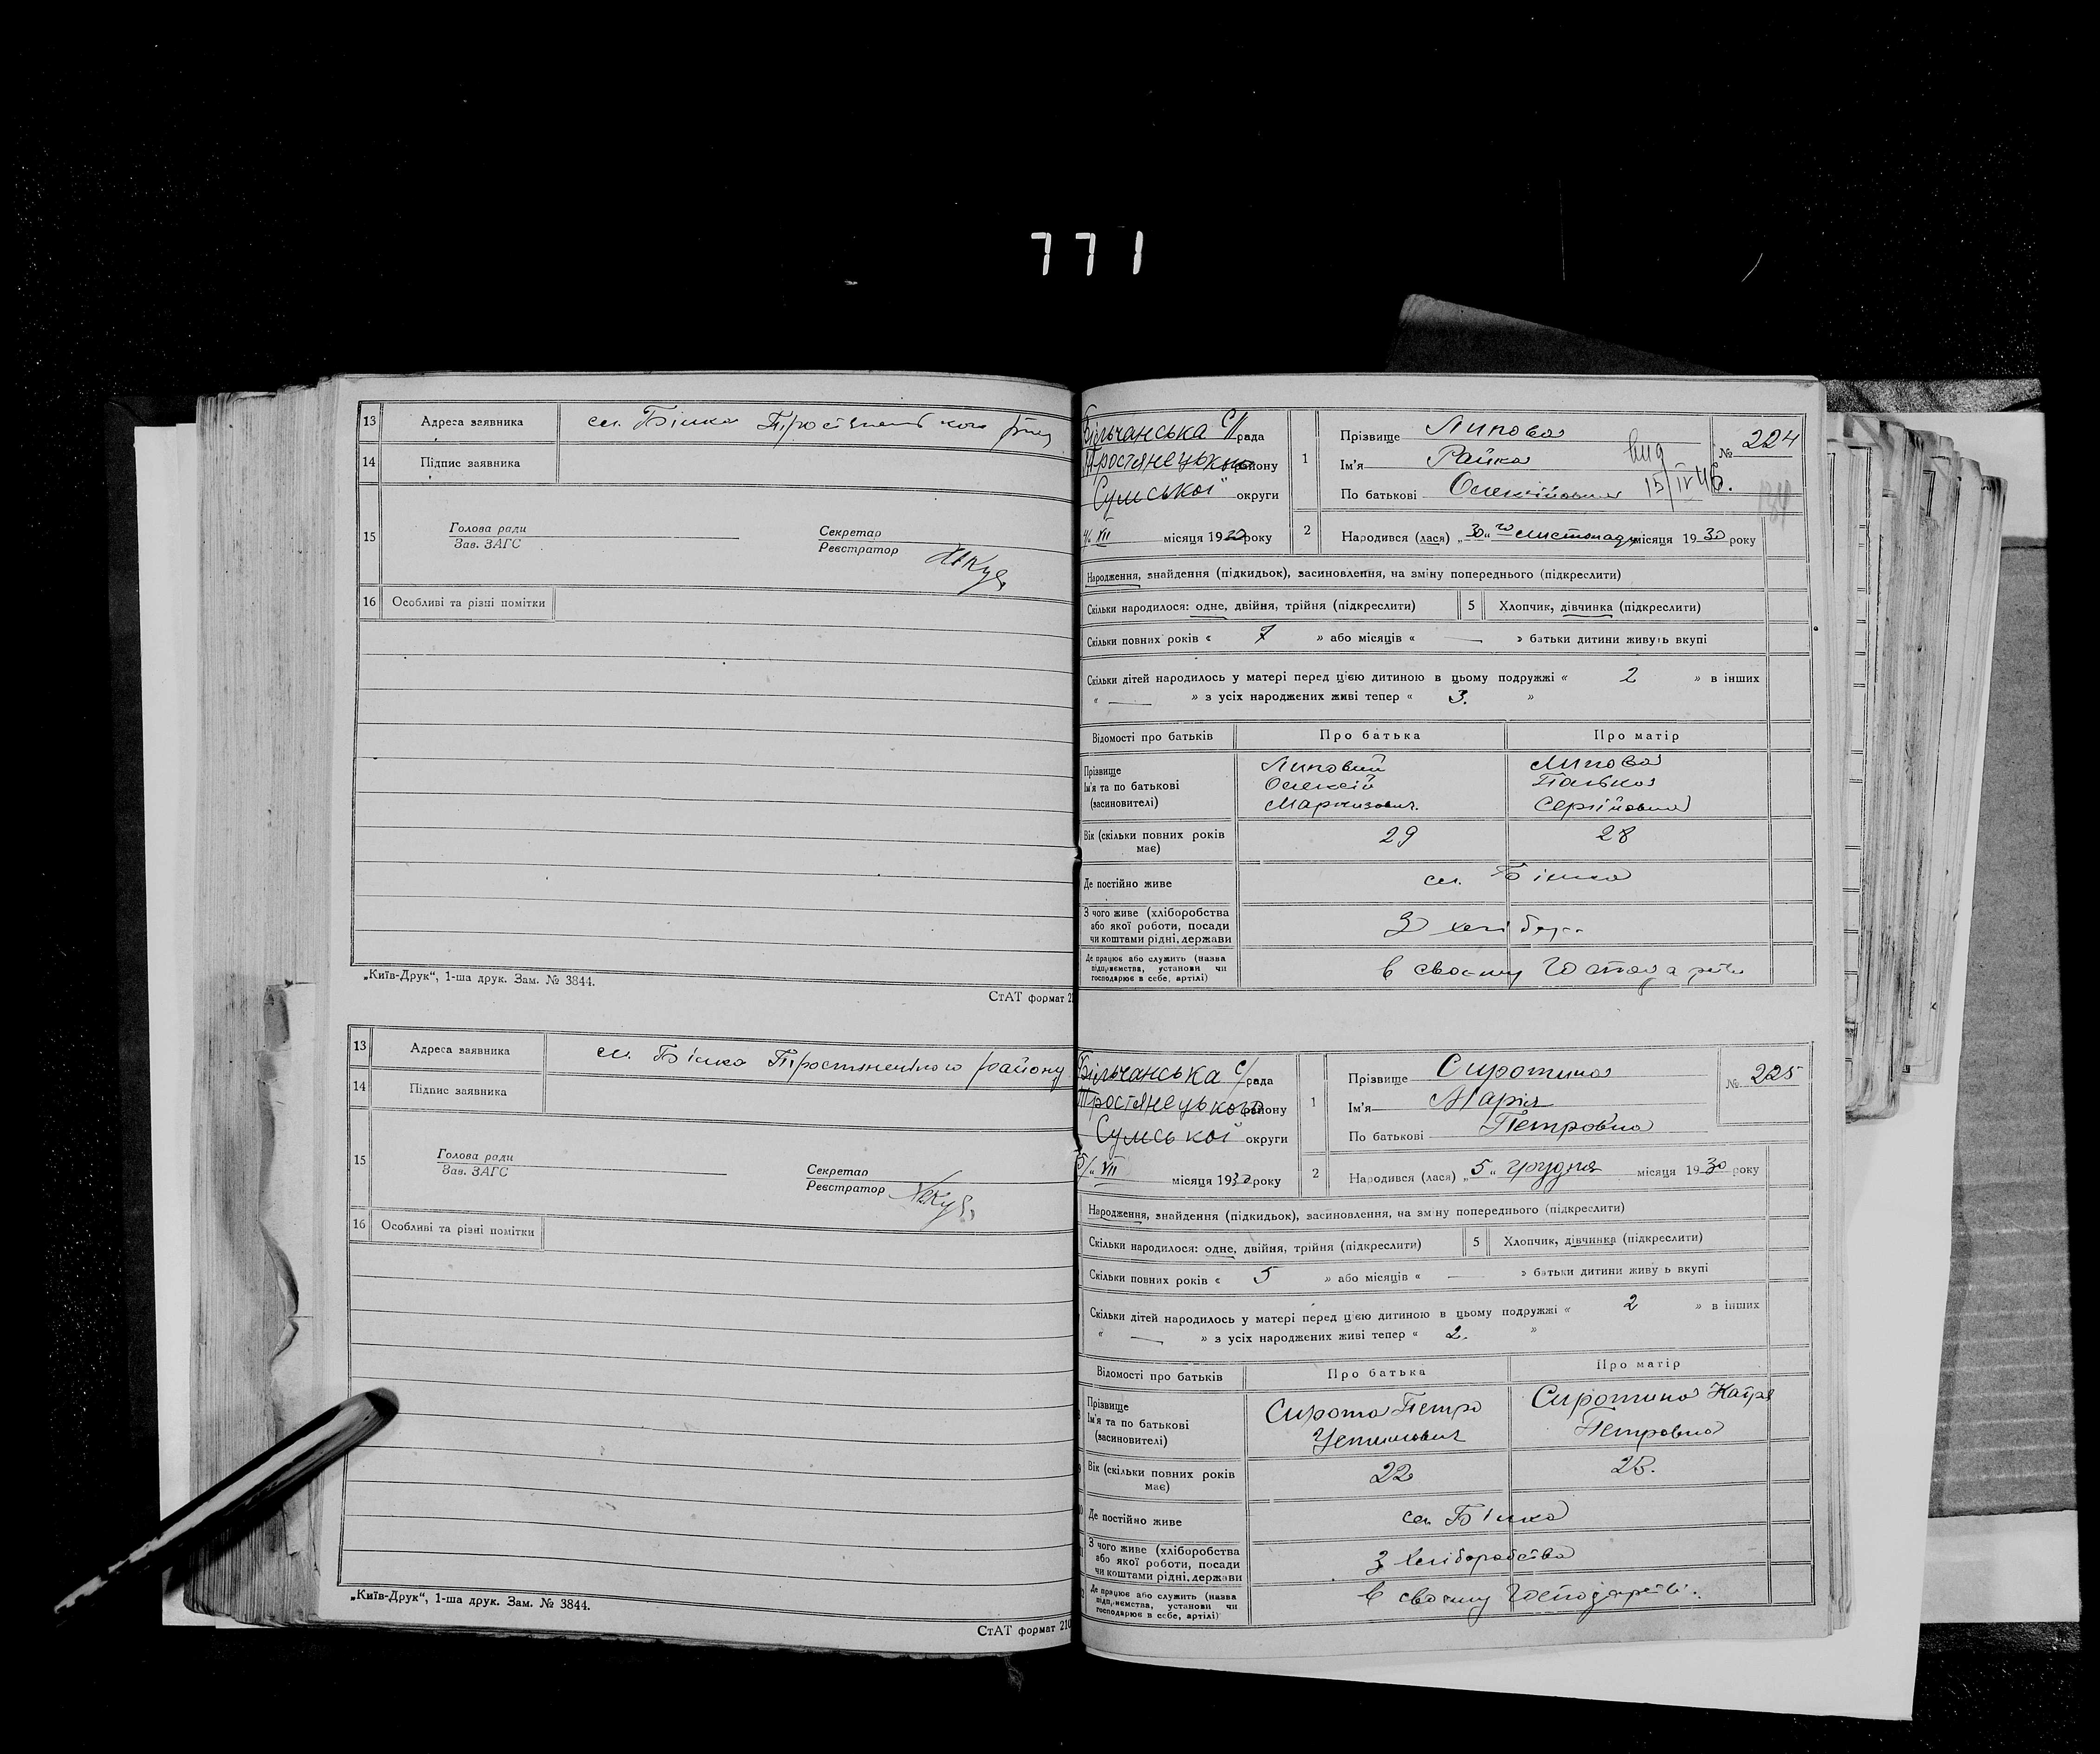 771
13 Адреса заявника сл. Білка Тростянецького р-ну
14 Підпис заявника
15 Голова ради
Зав. ЗАГС
Секретар
Реєстратор
16 Особливі та різні помітки
„Київ-Друк“, 1-ша друк. Зам. № 3844.
СтАТ формат 21
13 Адреса заявника сл. Білка Тростянецького району
14 Підпис заявника
15 Голова ради
Зав. ЗАГС
Секретар
Реєстратор
16 Особливі та різні помітки
„Київ-Друк“, 1-ша друк. Зам. № 3844.
СтАТ формат 210
Більчанська С/рада
Тростянецького району
Сумської округи
4/XII місяця 1930 року
1 Прізвище Липова
Ім'я Райка
По батькові Олексійовна
вид
15/IV 46.
№ 224
2 Народився (лася) „30“ го листопада місяця 1930 року
Народження, знайдення (підкидьок), засиновлення, на зміну попереднього (підкреслити)
Скільки народилося: одне, двійня, трійня (підкреслити) 5 Хлопчик, дівчинка (підкреслити)
Скільки повних років « 7 » або місяців « — » батьки дитини живуть вкупі
Скільки дітей народилось у матері перед цією дитиною в цьому подружжі « 2 » в інших
« — » з усіх народжених живі тепер « 3. »
Відомості про батьків Про батька Про матір
Прізвище Липовий Липова
Ім'я та по батькові Олексій Палька
(засиновителі) Сергійовна
Вік (скільки повних років 29 28
має)
Де постійно живе сл. Білка
З чого живе (хліборобства
або якої роботи, посади З хлібор.
чи коштами рідні, держави
Де працює або служить (назва
підприємства, установи чи в своєму господарстві
господарює в себе, артілі)
Більчанська С/рада
Тростянецького району
Сумської округи
5/XII місяця 1930 року
1 Прізвище Сиротина
Ім'я Марія
По батькові Петровна
№ 225
2 Народився (лася) „5“ грудня місяця 1930 року
Народження, знайдення (підкидьок), засиновлення, на зміну попереднього (підкреслити)
Скільки народилося: одне, двійня, трійня (підкреслити) 5 Хлопчик, дівчинка (підкреслити)
Скільки повних років « 5 » або місяців « — » батьки дитини живуть вкупі
Скільки дітей народилось у матері перед цією дитиною в цьому подружжі « 2 » в інших
« — » з усіх народжених живі тепер « 2. »
Відомості про батьків Про батька Про матір
Прізвище Сирота Петро Сиротина Катря
Ім'я та по батькові Устимович Петровна
(засиновителі)
Вік (скільки повних років 22
має)
Де постійно живе сл. Білка
З чого живе (хліборобства
або якої роботи, посади з хліборобства
чи коштами рідні, держави
Де працює або служить (назва
підприємства, установи чи в своєму господарстві.
господарює в себе, артілі)